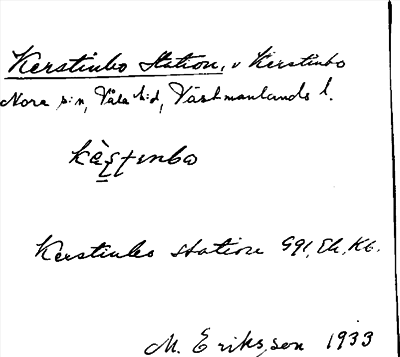 Kerstinbo Station, v Kerstinbo
Nora sn, Våla hd, Västmanlands l.
Kerstinbo station G91, Ek. Kb.
M. Eriksson 1933